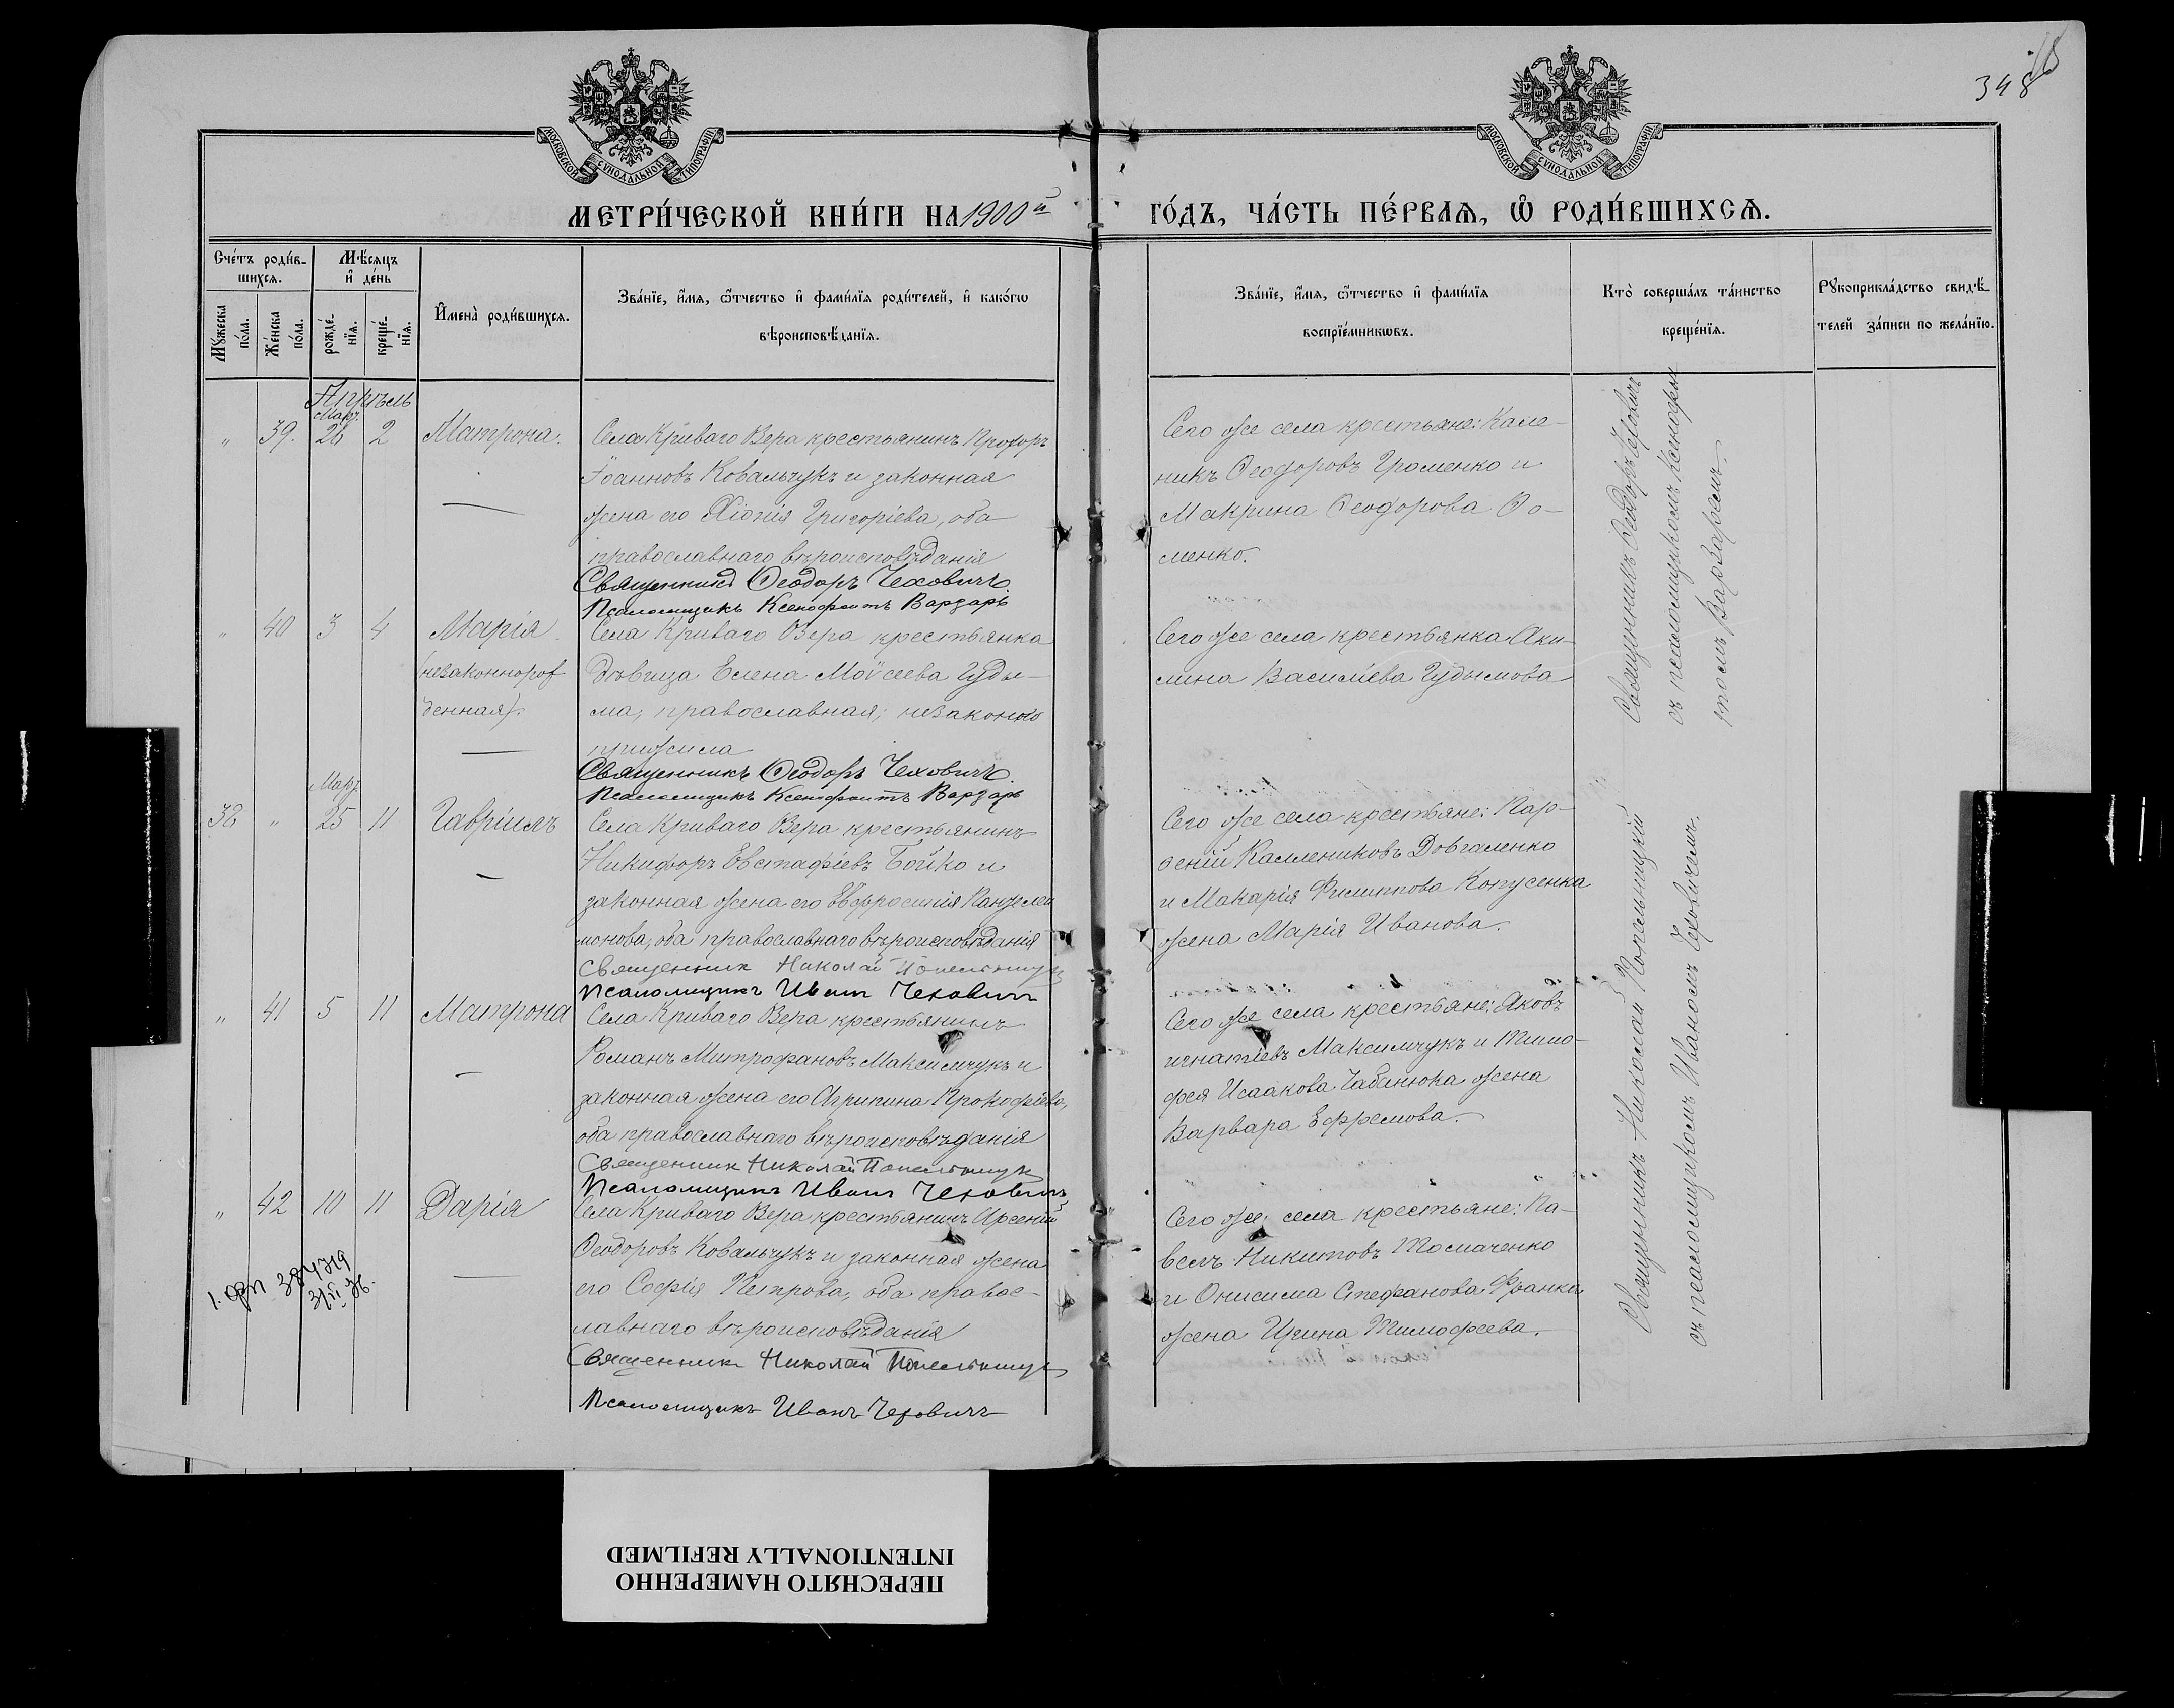 348
МОСКОВСКОЙ СѴНОДАЛЬНОЙ ТИПОГРАФІИ
МОСКОВСКОЙ СѴНОДАЛЬНОЙ ТИПОГРАФІИ
МЕТРИ́ЧЕСКОЙ КНИ́ГИ НА 1900й
ГО́ДЪ, ЧА́СТЬ ПЕ́РВАѦ, Ѡ҆ РОДИ́ВШИХСѦ.
Сче́тъ роди́в-
шихсѧ.
Мѣ́сѧцъ
и҆ де́нь
Мꙋ́жеска
по́ла.
Же́нска
по́ла.
рожде́-
нїѧ.
креще́-
нїѧ.
И҆мена̀ роди́вшихсѧ.
Зва́нїе, и҆́мѧ, ѻ҆́тчество и҆ фами́лїѧ роди́телей, и҆ како́гѡ
вѣроисповѣ́данїѧ.
Зва́нїе, и҆́мѧ, ѻ҆́тчество и҆ фами́лїѧ
воспрїе́мникѡвъ.
Кто̀ соверша́лъ та́инство
креще́нїѧ.
Рꙋкоприкла́дство свидѣ́-
телей за́писи по жела́нїю.
Апрѣль
Март.
" 39. 26 2 Матрона.
Села Криваго Озера крестьянинъ Прохоръ
Іоанновъ Ковальчукъ и законная
жена его Хіонія Григоріева, оба
православнаго вѣроисповѣданія
Священникъ Ѳеодоръ Чехович
Псаломщикъ Ксенофонтъ Варзарь
Сего же села крестьяне: Кале-
никъ Ѳеодоровъ Громенко и
Макрина Ѳеодорова Ѳо-
менко.
Священникъ Ѳеодоръ Чехович
съ псаломщикомъ Ксенофон
томъ Варзаремъ.
" 40 3 4 Марія
(незаконнорож
денная).
Села Криваго Озера крестьянка
дѣвица Елена Моѵсеева Гуды-
ма, православная; незаконно
прижила
Священникъ Ѳеодоръ Чехович
Псаломщикъ Ксенофонтъ Варзарь
Сего же села крестьянка Аки-
лина Василіева Гудымова
Март.
38 " 25 11 Гавріилъ
Села Криваго Озера крестьянинъ
Никифоръ Евстафіевъ Бойко и
законная жена его Евфросинія Пантелеи
монова, оба православнаго вѣроисповѣданія
Священник Николай
Псаломщикъ Иван Чехович
Сего же села крестьяне: Пар-
ѳеній Калениковъ Довгаленко
и Макарія Филиппова Копусенка
жена Марія Иванова.
Священникъ Николай
съ псаломщикомъ Иваномъ Чеховичемъ.
" 41 5 11 Матрона
Села Криваго Озера крестьянинъ
Романъ Митрофановъ Максимчукъ и
законная жена его Агрипина Прокофіева,
оба православнаго вѣроисповѣданія
Священник Николай
Псаломщикъ Иванъ Чехович
Сего же села крестьяне: Яковъ
Игнатіевъ Максимчукъ и Тимо-
фея Исаакова Чабанюка жена
Варвара Ефремова.
" 42 10 11 Дарія
Села Криваго Озера крестьянинъ Арсеній
Ѳеодоровъ Ковальчукъ и законная жена
его Софія Петрова, оба правос-
лавнаго вѣроисповѣданія
Священник Николай
Псаломщикъ Иванъ Чехович
Сего же села крестьяне: Па-
велъ Никитовъ Толмаченко
и Онисима Стефанова Франки
жена Ирина Тимофеева.
ПЕРЕСНЯТО НАМЕРЕННО
INTENTIONALLY REFILMED